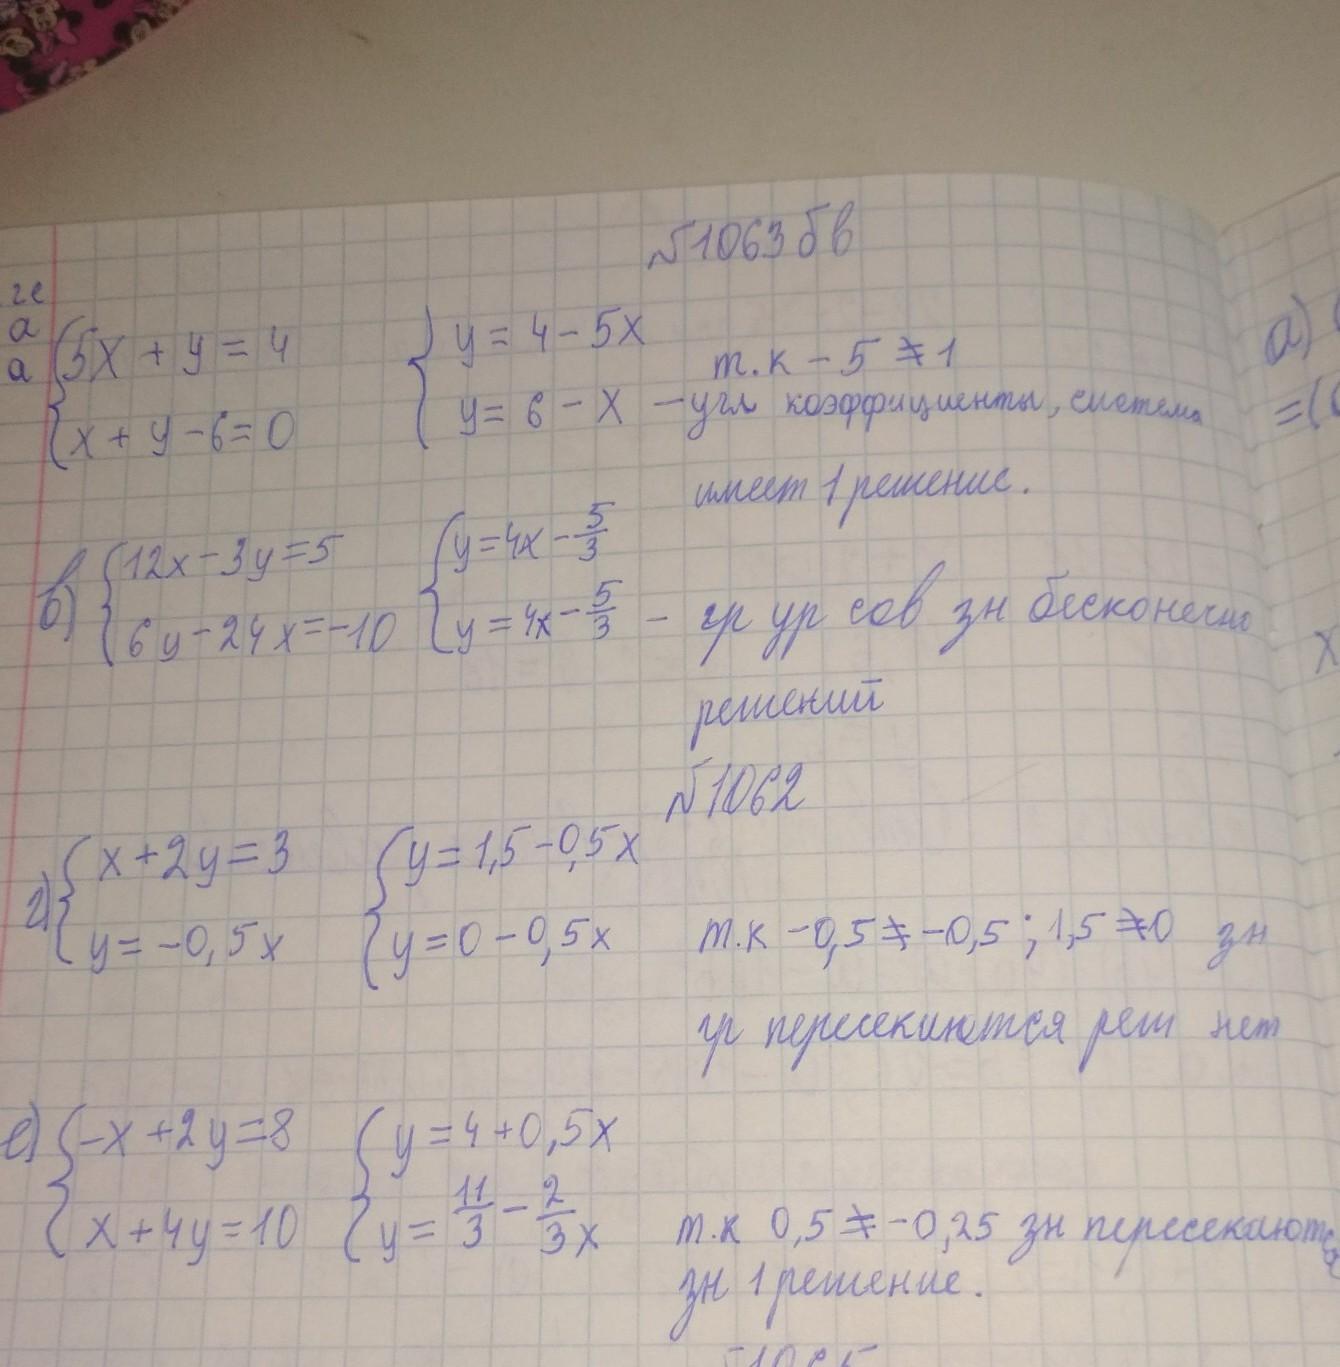 №1063 б в
ге
а
а
{5x + y = 4 {y = 4 - 5x т.к - 5 ≠ 1
{x + y - 6 = 0 {y = 6 - x - угл коэффициенты, система
имеет 1 решение.
в) {12x - 3y = 5 {y = 4x - 5/3
{6y - 24x = -10 {y = 4x - 5/3 - гр ур сов зн бесконечно
решений
№1062
г) {x + 2y = 3 {y = 1,5 - 0,5x
{y = -0,5x {y = 0 - 0,5x т.к -0,5 ≠ -0,5 ; 1,5 ≠ 0 зн
гр пересекиются реш нет
е) {-x + 2y = 8 {y = 4 + 0,5x
{x + 4y = 10 {y = 11/3 - 2/3 x т.к 0,5 ≠ -0,25 зн пересекаются
зн 1 решение.
а)
=(
x